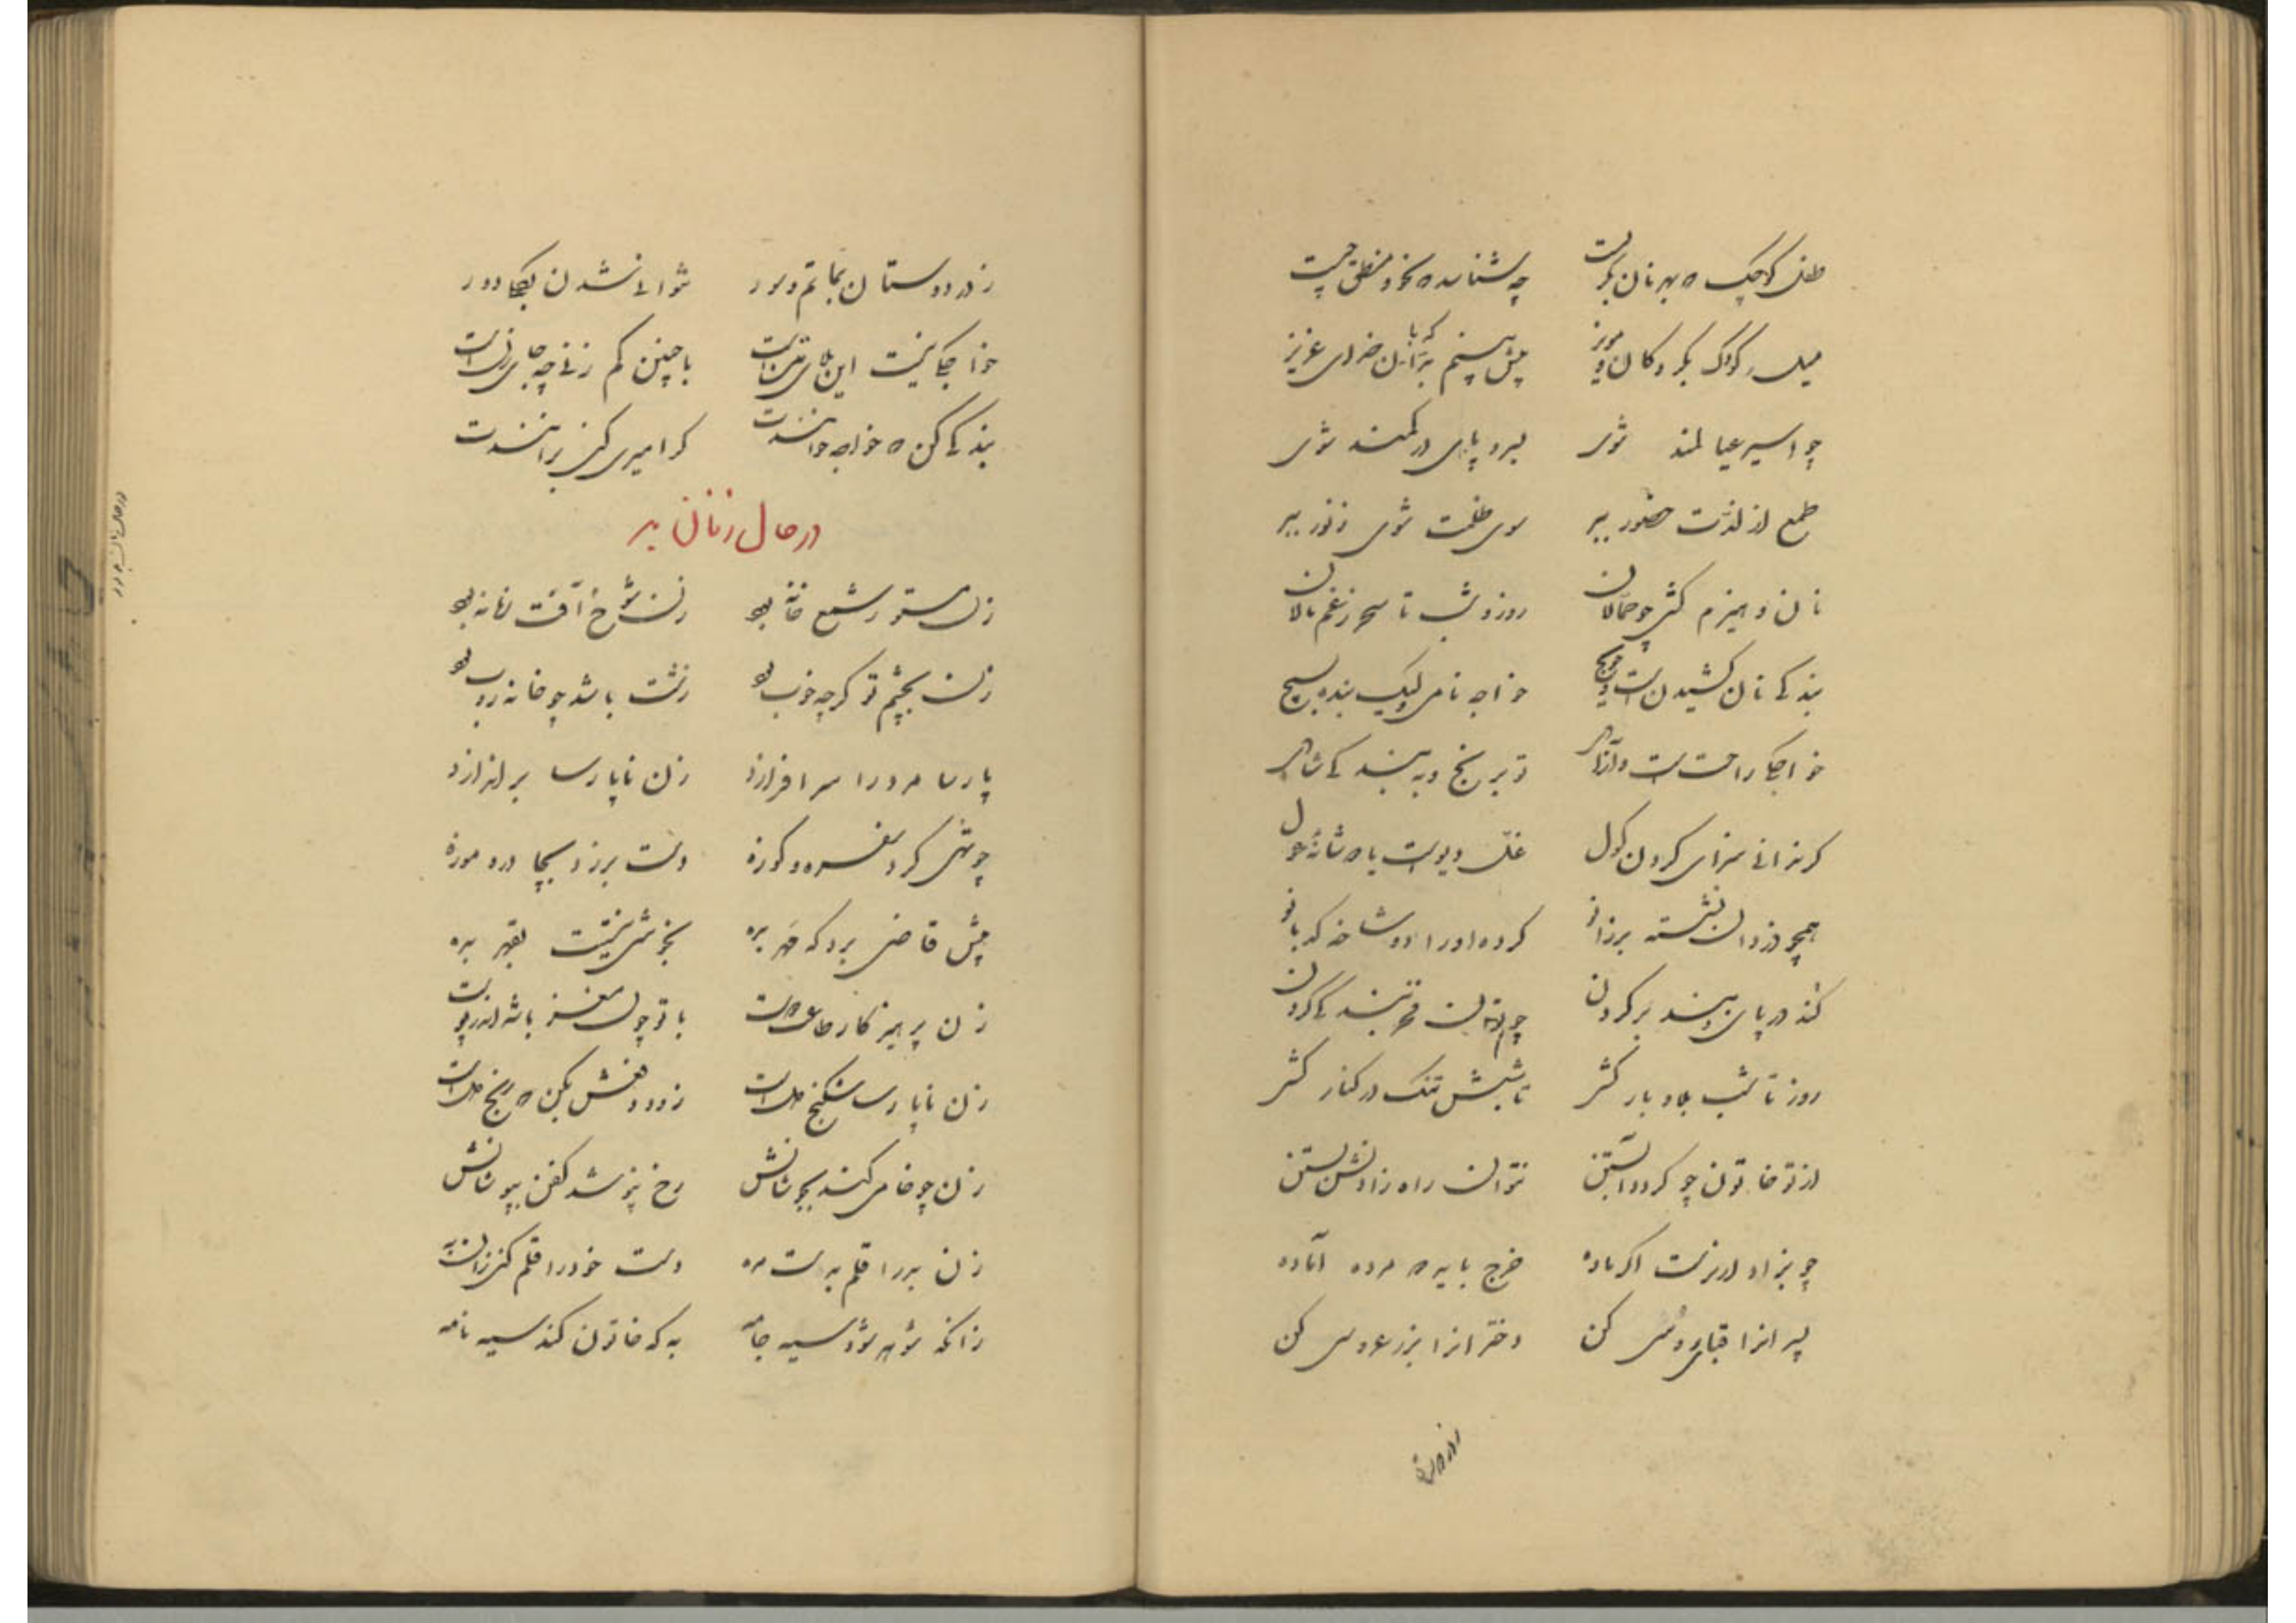 طفل کوچک که بهر نان بگریست چه شناسد که نحو و منطق چیست
میل کودک بگردکان و مویز پیش بینم خدای عزیز
چو اسیر عیالمند شوی بسر و پای در کمند شوی
طمع از لذت حضور ببر سوی ظلمت شوی ز نور ببر
نان و هیزم کشی چو حمالان روز و شب تا سحر ز غم نالان
بندگی نان کشیدنست و حویج خواجه نامی ولیک بنده بسیج
خواجگی راحت است و آزادی تو برنج و ببند کی شادی
گر ندانی سزای گردن گول غل دیوست یا که شانه غول
همچو دزدان نشسته بر زانو کرده او را دوشاخه کدبانو
کنده در پای و بند بر گردن چون توان فخر بندگی کردن
روز تا شب بلا و بار کشی تا شبش تنگ در کنار کشی
از تو خاتون چو گردد آبستن نتوان راه زادنش بستن
چو بزاد ار نرست اگر ماده خرج باید که کرده آماده
پسرانرا قبای روسی کن دخترانرا بزر عروسی کن
زن و دستان بماتم و سور نتوانی شدن بکجا دور
خواجگی نیست این بلای تنست با چنین کم زنی چه جای زنست
بندگی کن که خواجه خوانندت گر امیری کنی برانندت
در حال زنان بد
زن مستور شمع خانه بود زن شوخ آفت زمانه بود
زن بچشم تو گرچه خوب بود زشت باشد چو خانه روب بود
پارسا مرد را سرافرازد زن ناپارسا براندازد
چو تهی کرد سفره و کوزه دست بر زد بچادر و موزه
پیش قاضی برد که مهر بده بخوشی نیست بقهر بده
زن پرهیزکار طاعت دوست با تو چون مغز باشد اندر پوست
زن ناپارسا شکنج دلست زود دفعش بکن که رنج دلست
زن چو خامی کند بجوشانش رخ نپوشد کفن بپوشانش
زن بد را قلم بدست مده دست خود را قلم کنی زان به
زانکه شوهر شود سیه جامه به که خاتون کند سیه نامه